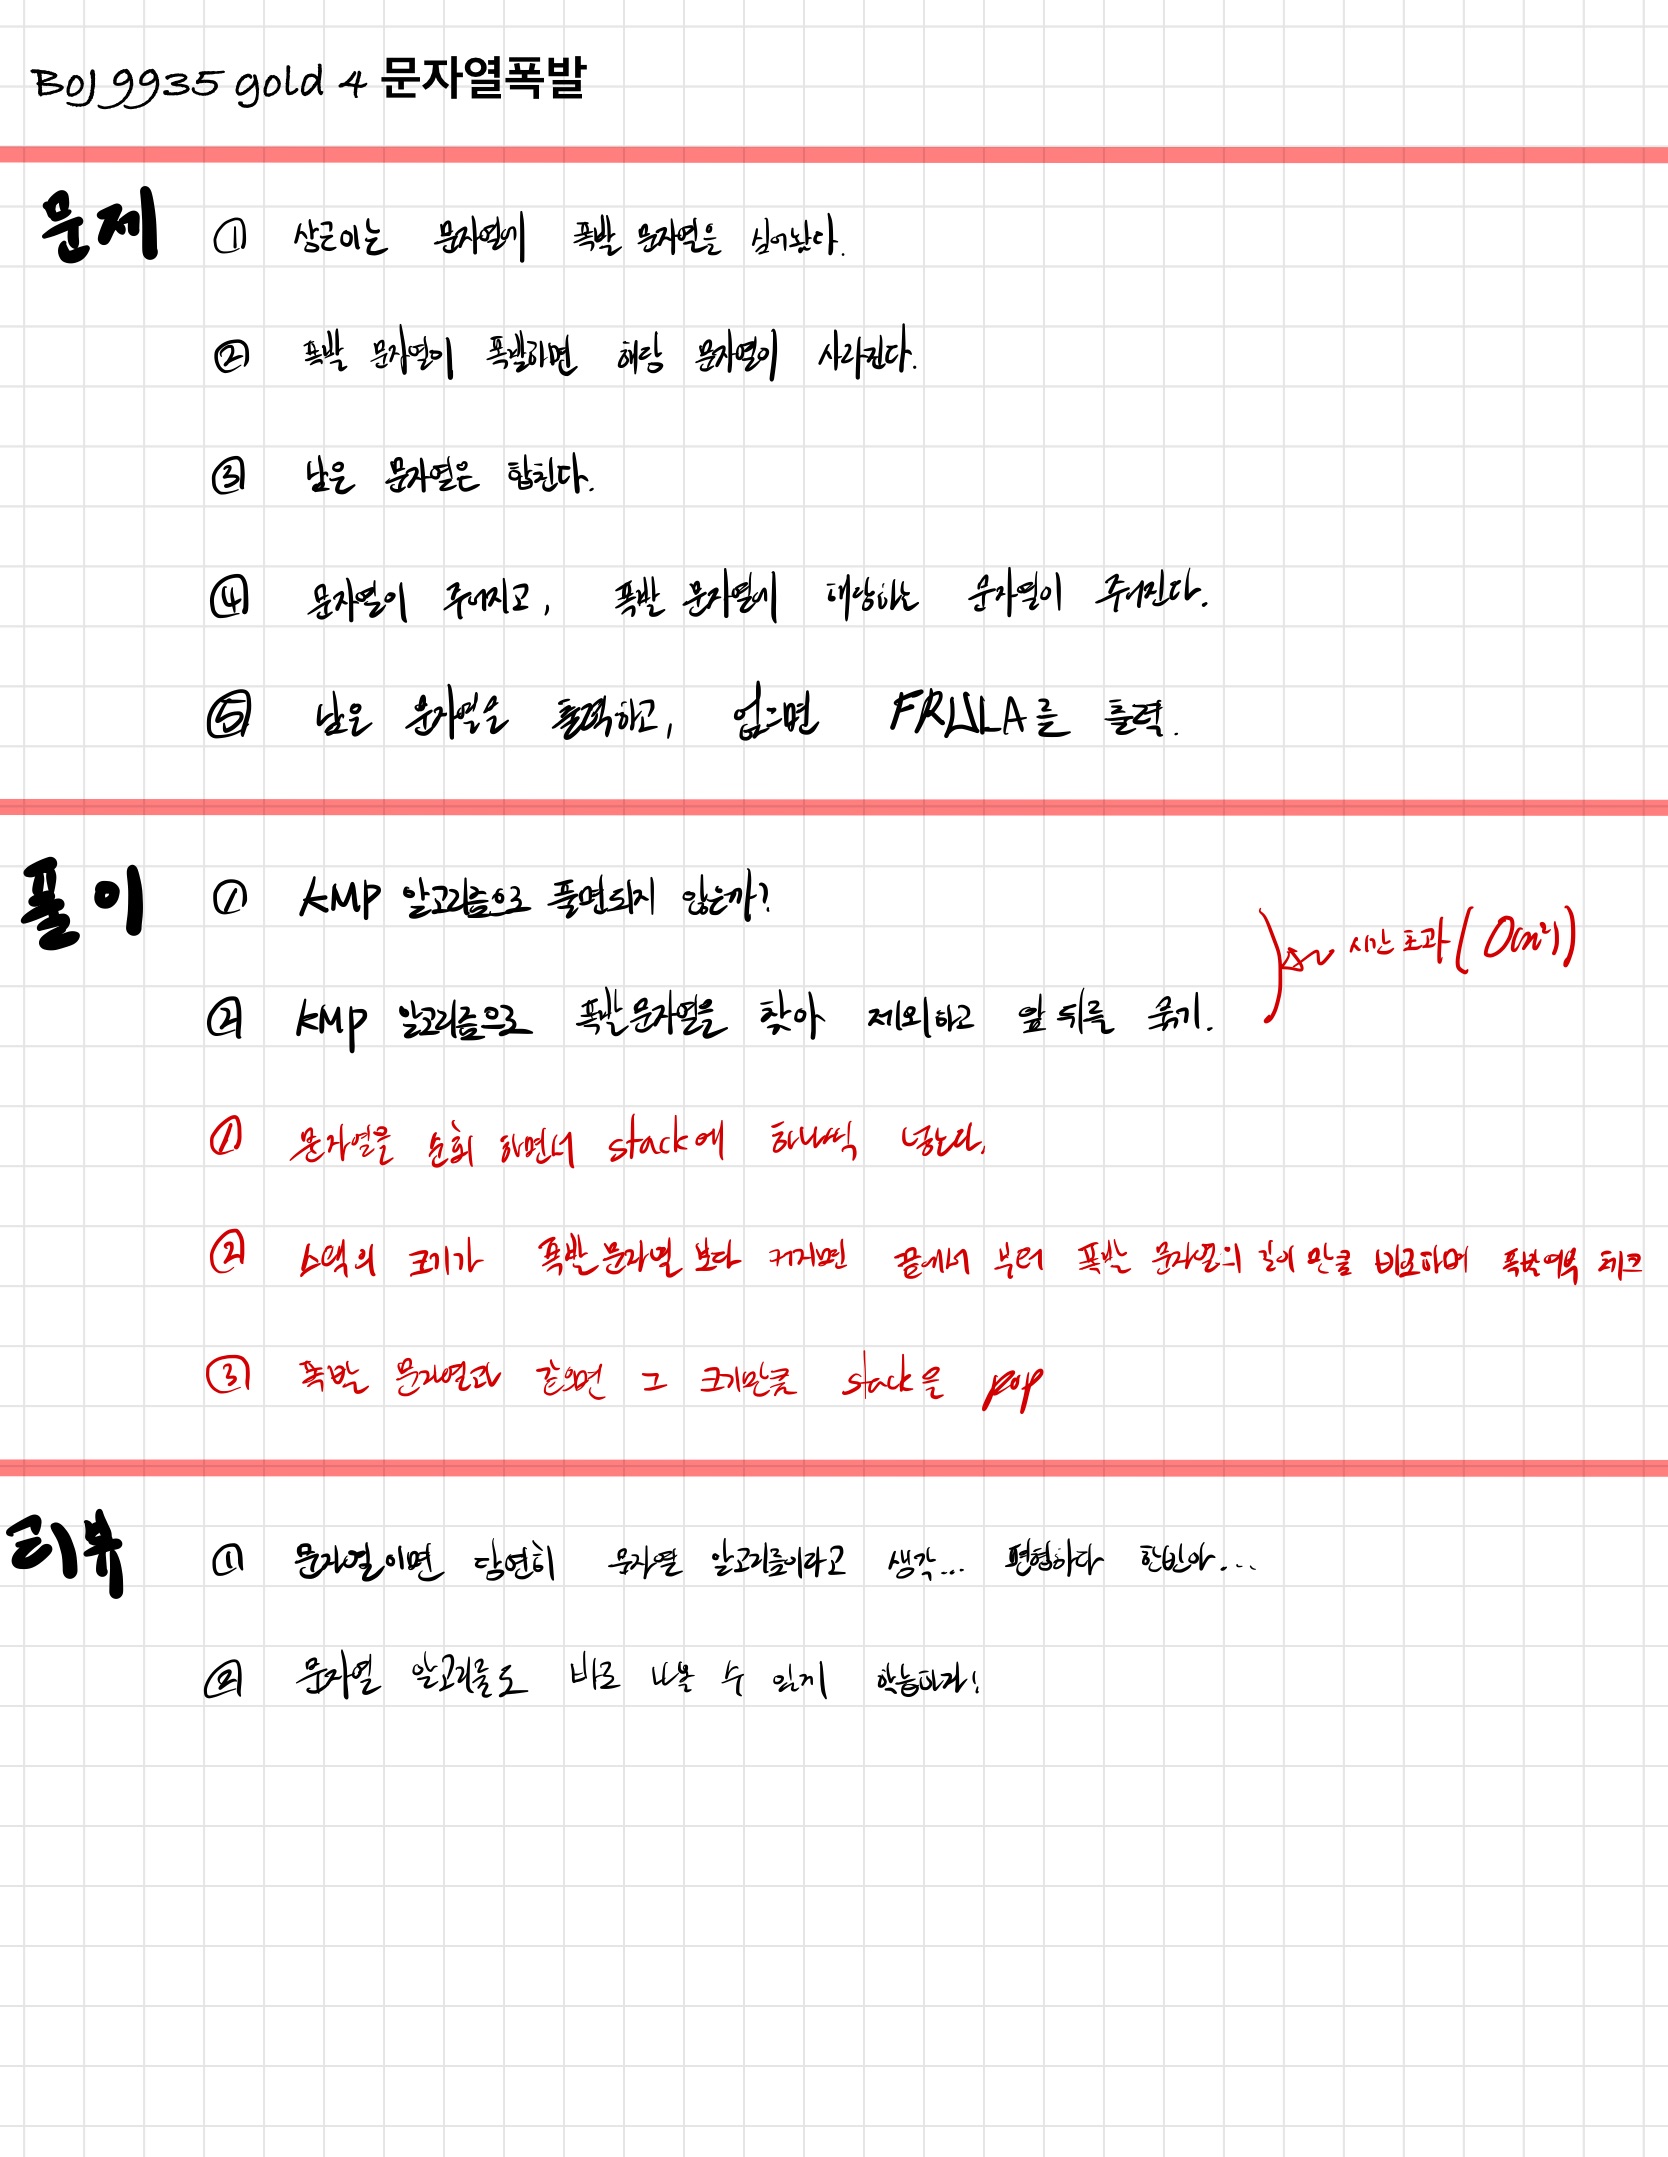 BOJ 9935 gold 4 문자열폭발
문제
① 상근이는 문자열에 폭발 문자열을 심어놨다.
② 폭발 문자열이 폭발하면 해당 문자열이 사라진다.
③ 남은 문자열은 합친다.
④ 문자열이 주어지고, 폭발 문자열에 해당하는 문자열이 주어진다.
⑤ 남은 문자열을 출력하고, 없으면 FRULA를 출력.
풀이
① KMP 알고리즘으로 풀면되지 않는까?
② KMP 알고리즘으로 폭발문자열을 찾아 제외하고 앞 뒤를 묶기.
시간 초과 (O(n²))
① 문자열을 순회 하면서 stack에 하나씩 넣는다.
② 스택의 크기가 폭발문자열 보다 커지면 끝에서 부터 폭발 문자열의 길이 만큼 비교하며 폭발여부 체크
③ 폭발 문자열과 같으면 그 크기만큼 stack을 pop
리뷰
① 문자열이면 당연히 문자열 알고리즘이라고 생각... 편협하다 한빈아...
② 문자열 알고리즘도 바로 나올 수 있게 학습하자!